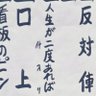 反対俥
人生が二度あれば
口上
看板のピン